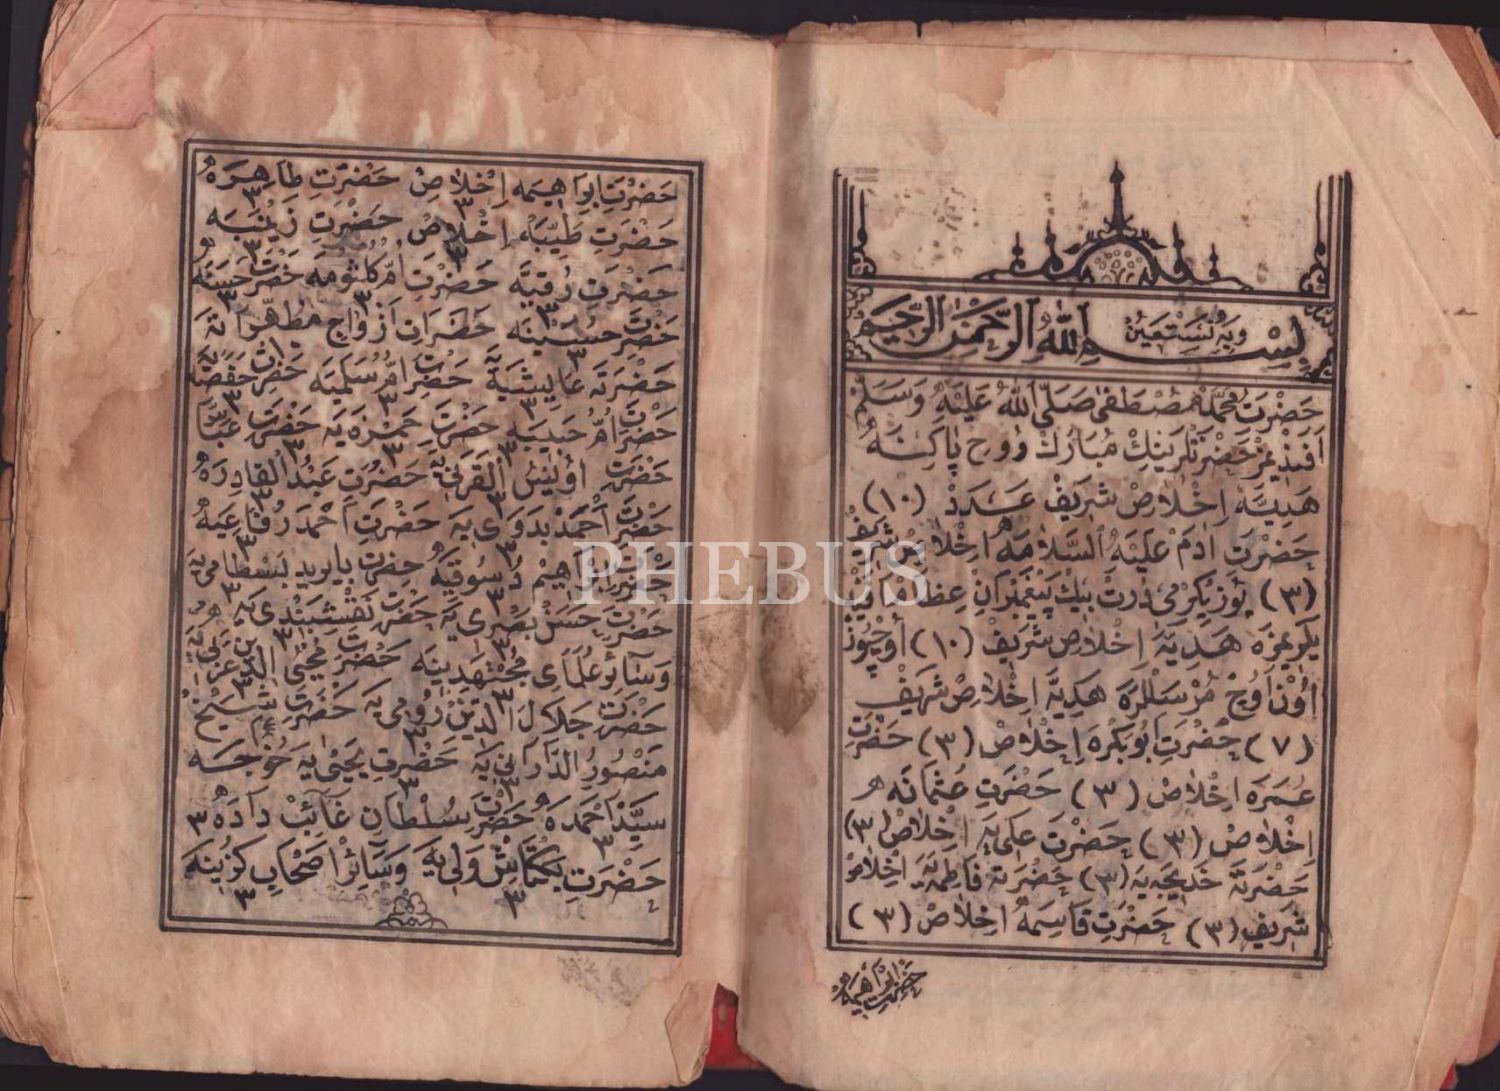 بِسْمِ اللهِ الرَّحْمٰنِ الرَّحِيمِ وَبِهِ نَسْتَعِينُ
حَضْرَتِ مُحَمَّدْ مُصْطَفٰى صَلَّى اللهُ عَلَيْهِ وَسَلَّمْ
اَفَنْدِيمِزْ حَضْرَتْلَرِينِكْ مُبَارَكْ رُوحِ پَاكِنَه
هَدِيَّه اِخْلَاصْ شَرِيفْ عَدَدْ (١٠)
حَضْرَتِ اٰدَمْ عَلَيْهِ السَّلَامَه اِخْلَاصِ شَرِيفْ
(٣) يُوزْ يِكِرْمِى دُرْتْ بِيكْ پَيْغَمْبَرَانِ عِظَامْ
هَدِيَّه اِخْلَاصِ شَرِيفْ (١٠) اُوچْيُوزْ
اُونْ اُوچْ مُرْسَلْلَرَه هَدِيَّه اِخْلَاصْ شَرِيفْ
(٧) حَضْرَتِ اَبُوبَكْرَه اِخْلَاصْ (٣) حَضْرَتِ
عُمَرَه اِخْلَاصْ (٣) حَضْرَتِ عُثْمَانَه
اِخْلَاصْ (٣) حَضْرَتِ عَلِىيَه اِخْلَاصْ (٣)
حَضْرَتِ خَدِيجَه يَه (٣) حَضْرَتِ فَاطِمَه يَه اِخْلَاصْ
شَرِيفْ (٣) حَضْرَتِ قَاسِمَه اِخْلَاصْ (٣)
حَضْرَتِ اِبْرَاهِيمَه
حَضْرَتِ اِبْرَاهِيمَه اِخْلَاصْ ٣ حَضْرَتِ طَاهِرَه ٣
حَضْرَتِ طَيِّبَه اِخْلَاصْ ٣ حَضْرَتِ زَيْنَبَه ٣
حَضْرَتِ رُقَيَّه ٣ حَضْرَتِ اُمِّ كُلْثُومَه ٣ حَضْرَتِ حَسَنَه ٣
حَضْرَتِ حُسَيْنَه ٣ حَضَرَاتِ اَزْوَاجِ مُطَهَّرَاتَه
حَضْرَتِ عَايِشَه يَه ٣ حَضْرَتِ اُمِّ سَلَمَه يَه ٣ حَضْرَتِ حَفْصَه ٣
حَضْرَتِ اُمِّ حَبِيبَه ٣ حَضْرَتِ حَمْزَه يَه ٣ حَضْرَتِ عَبَّاسَه ٣
حَضْرَتِ اُوَيْسُ الْقَرَنِى ٣ حَضْرَتِ عَبْدُ الْقَادِرَه ٣
حَضْرَتِ اَحْمَدْ بَدَوِى يَه ٣ حَضْرَتِ اَحْمَدْ رُفَاعِيَه ٣
حَضْرَتِ اِبْرَاهِيمْ دُسُوقِيَه ٣ حَضْرَتِ بَايَزِيدِ بَسْطَامِى يَه
حَضْرَتِ حَسَنْ بَصْرِى يَه ٣ حَضْرَتِ نَقْشِبَنْدِى يَه ٣
وَسَائِرْ عُلَمَاىِ مُجْتَهِدِينَه ٣ حَضْرَتِ مُحْيِى الدِّينِ عَرَبِى يَه ٣
حَضْرَتِ جَلَالُ الدِّينِ رُومِى يَه ٣ حَضْرَتِ شَيْخْ
مَنْصُورُ الدَّارَانِى يَه ٣ حَضْرَتِ يَحْيٰى يَه ٣ خُوجَه
سَيِّدْ اَحْمَدَه ٣ حَضْرَتِ سُلْطَانِ غَائِبْ دَادَه ٣
حَضْرَتِ بَكْتَاشْ وَلِى يَه ٣ وَسَائِرْ اَصْحَابِ كُزِينَه ٣
PHEBUS